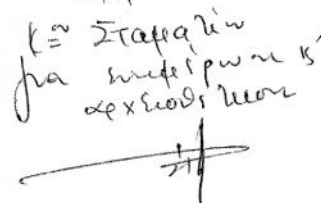 κα Σταματίου
για ενημέρωση κ'
αρχειοθέτηση